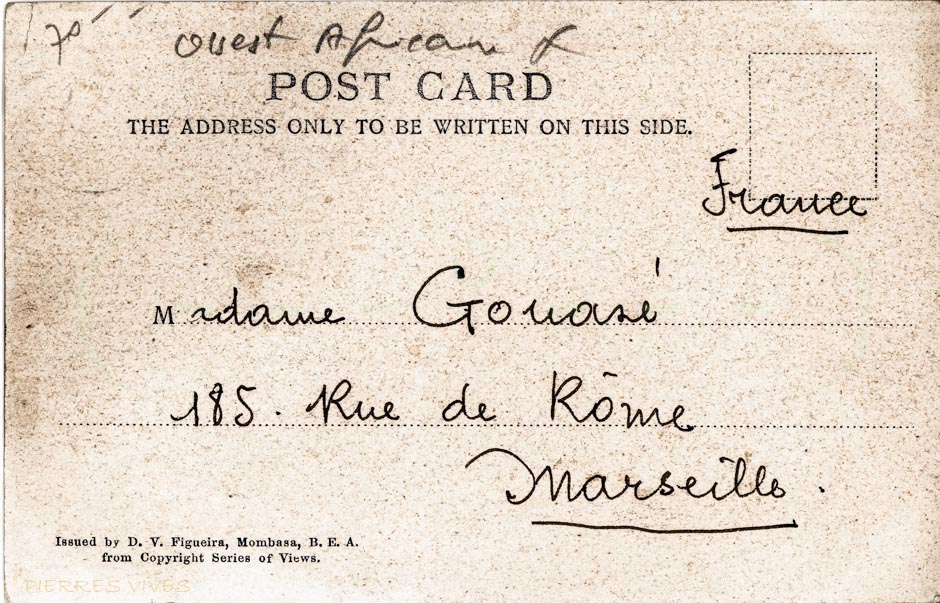 Ouest Africain
POST CARD
THE ADDRESS ONLY TO BE WRITTEN ON THIS SIDE.
France
Madame Gouazé
185. Rue de Rôme
Marseille.
Issued by D. V. Figueira, Mombasa, B. E. A.
from Copyright Series of Views.
PIERRES VIVES